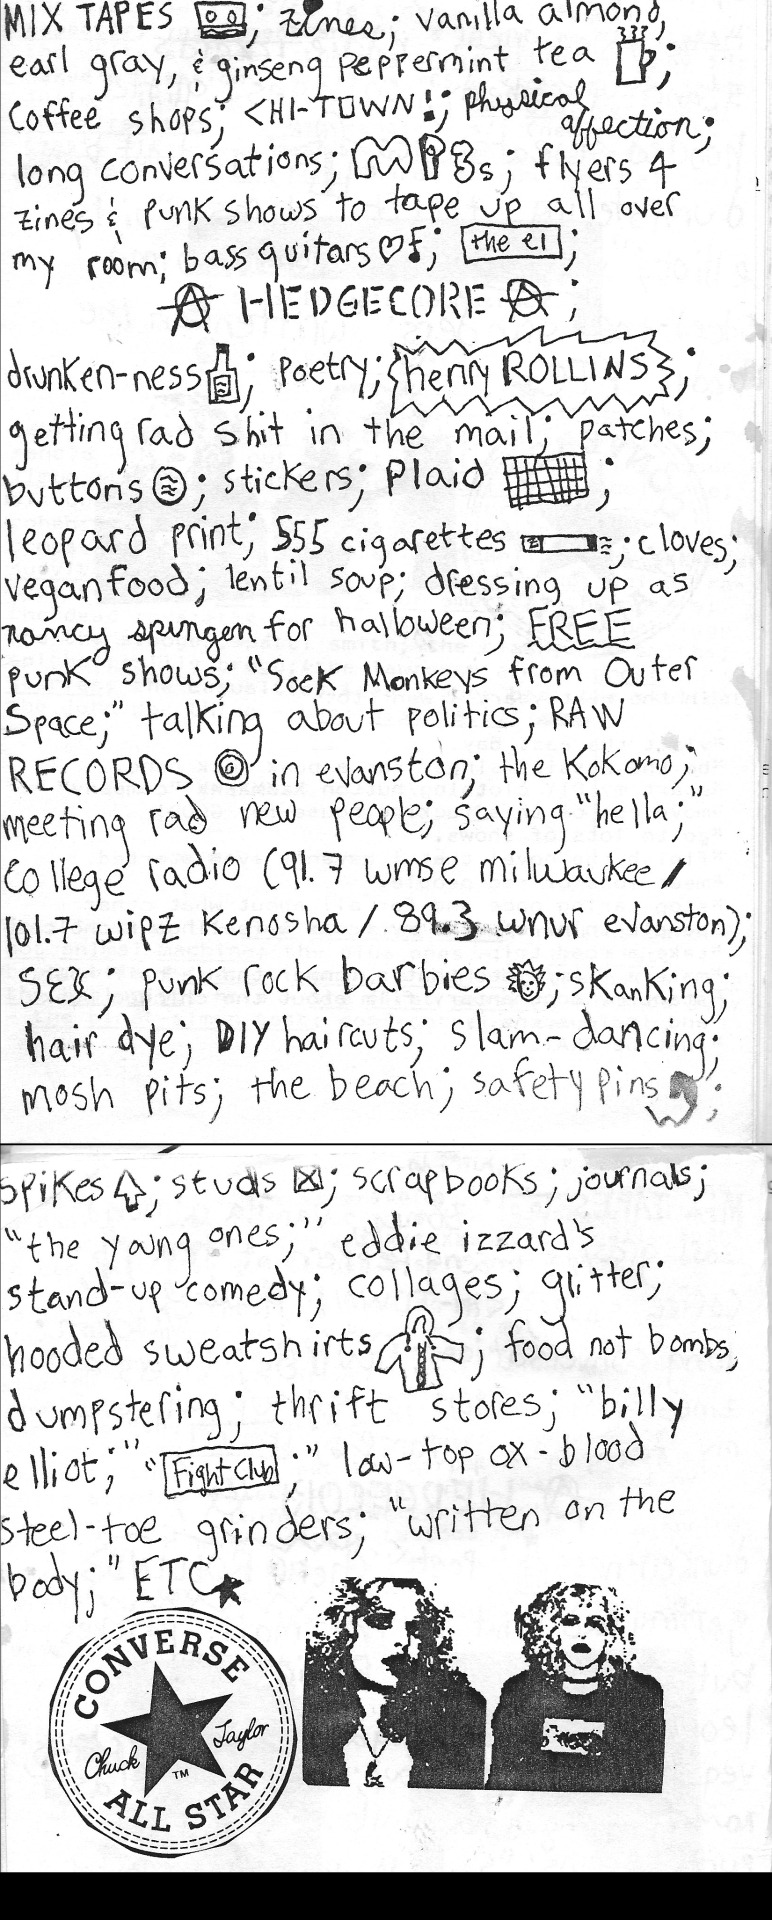 MIX TAPES; zines; vanilla almond,
earl gray, & ginseng peppermint tea;
Coffee shops; CHI-TOWN!; physical
affection;
long conversations; MP3s; flyers 4
zines & punk shows to tape up all over
my room; bass guitars; the el;
HEDGECORE;
drunken-ness; Poetry; henry ROLLINS;
getting rad shit in the mail; patches;
buttons; stickers; Plaid;
leopard print; 555 cigarettes; cloves;
vegan food; lentil soup; dressing up as
nancy spungen for halloween; FREE
punk shows; "Sock Monkeys from Outer
Space;" talking about politics; RAW
RECORDS in evanston; the Kokomo;
meeting rad new people; saying "hella;"
College radio (91.7 wmse milwaukee/
101.7 wipz Kenosha / 89.3 wnur evanston);
SEX; punk rock barbies; skanking;
hair dye; DIY haircuts; slam-dancing;
mosh pits; the beach; safety pins;
spikes; studs; scrapbooks; journals;
"the young ones;" eddie izzard's
stand-up comedy; collages; glitter;
hooded sweatshirts; food not bombs;
dumpstering; thrift stores; "billy
elliot;" "Fight Club;" low-top ox-blood
steel-toe grinders; "written on the
body;" ETC
CONVERSE
Chuck Taylor
TM
ALL STAR